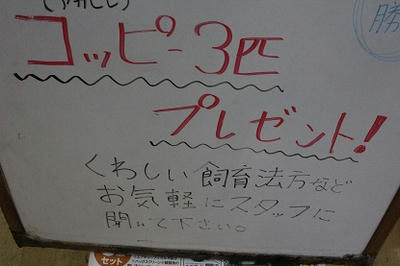 コッピー3匹
プレゼント!
くわしい飼育法方など
お気軽にスタッフに
聞いて下さい。
セット